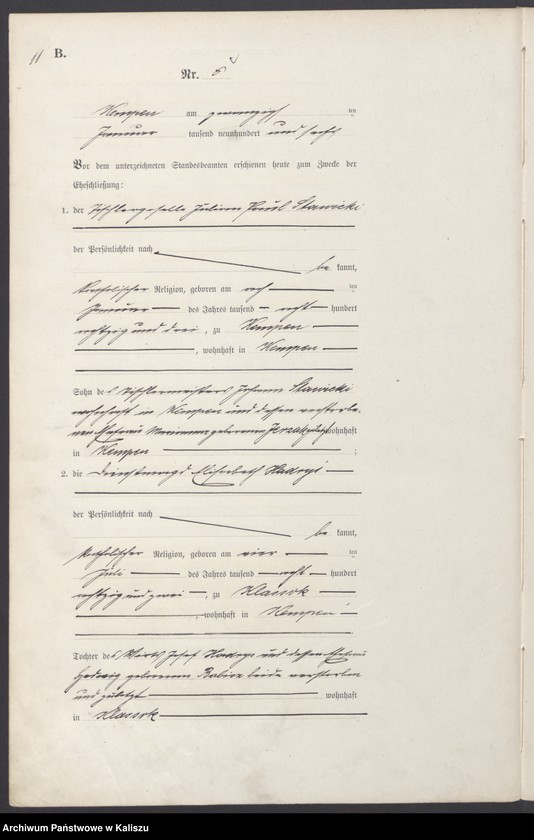 11 B.
Nr. 5
Kempen am zwanzigsten
Januar tausend neunhundert und sechs
Vor dem unterzeichneten Standesbeamten erschienen heute zum Zwecke der
Eheschließung:
1. der Tischlergeselle Julian Paul Stawicki
der Persönlichkeit nach
be kannt,
katholischer Religion, geboren am ten
Januar des Jahres tausend acht hundert
achtzig und drei, zu Kempen
, wohnhaft in Kempen
Sohn des Tischlermeisters Johann Stawicki
wohnhaft in Kempen und dessen verstorbe-
nen Ehefrau Marianna geborenen zuletzt wohnhaft
in Kempen ;
2. die Dienstmagd Elisabeth
der Persönlichkeit nach
be kannt,
katholischer Religion, geboren am vier ten
Juli des Jahres tausend acht hundert
achtzig und zwei, zu
, wohnhaft in Kempen
Tochter des Wirts Josef und dessen Ehefrau
Hedwig geborenen beide verstorben
und zuletzt wohnhaft
in
Archiwum Państwowe w Kaliszu